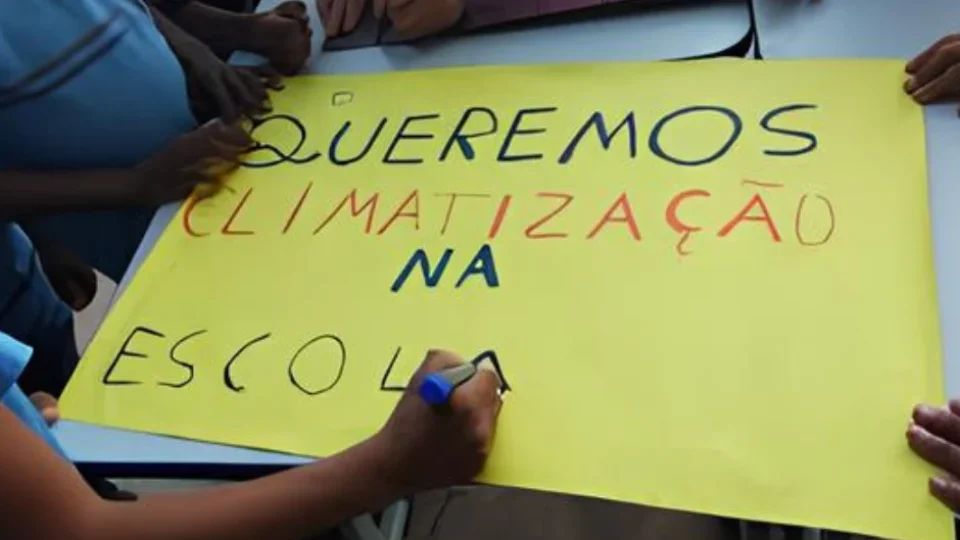 QUEREMOS
CLIMATIZAÇÃO
NA
ESCOLA